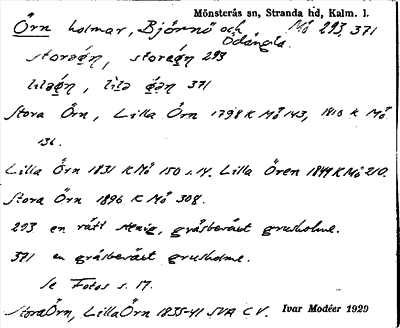 Mönsterås sn, Stranda hd, Kalm. l.
Örn holmar, Björnö och Ödängla. Mö 293, 371
storaǿn, storaǿn 293
371
Stora Örn, Lilla Örn 1798 K Mö 143, 1810 K Mö
136.
Lilla Örn 1831 K Mö 150 s. 14. Lilla Ören 1844 K Mö 210.
Stora Örn 1896 K Mö 308.
293 en rätt stenig, gräsbeväxt grusholme.
371 en gräsbeväxt grusholme.
Se Fotos s. 17.
Stora Örn, Lilla Örn 1835-41 SVA CV. Ivar Modéer 1929